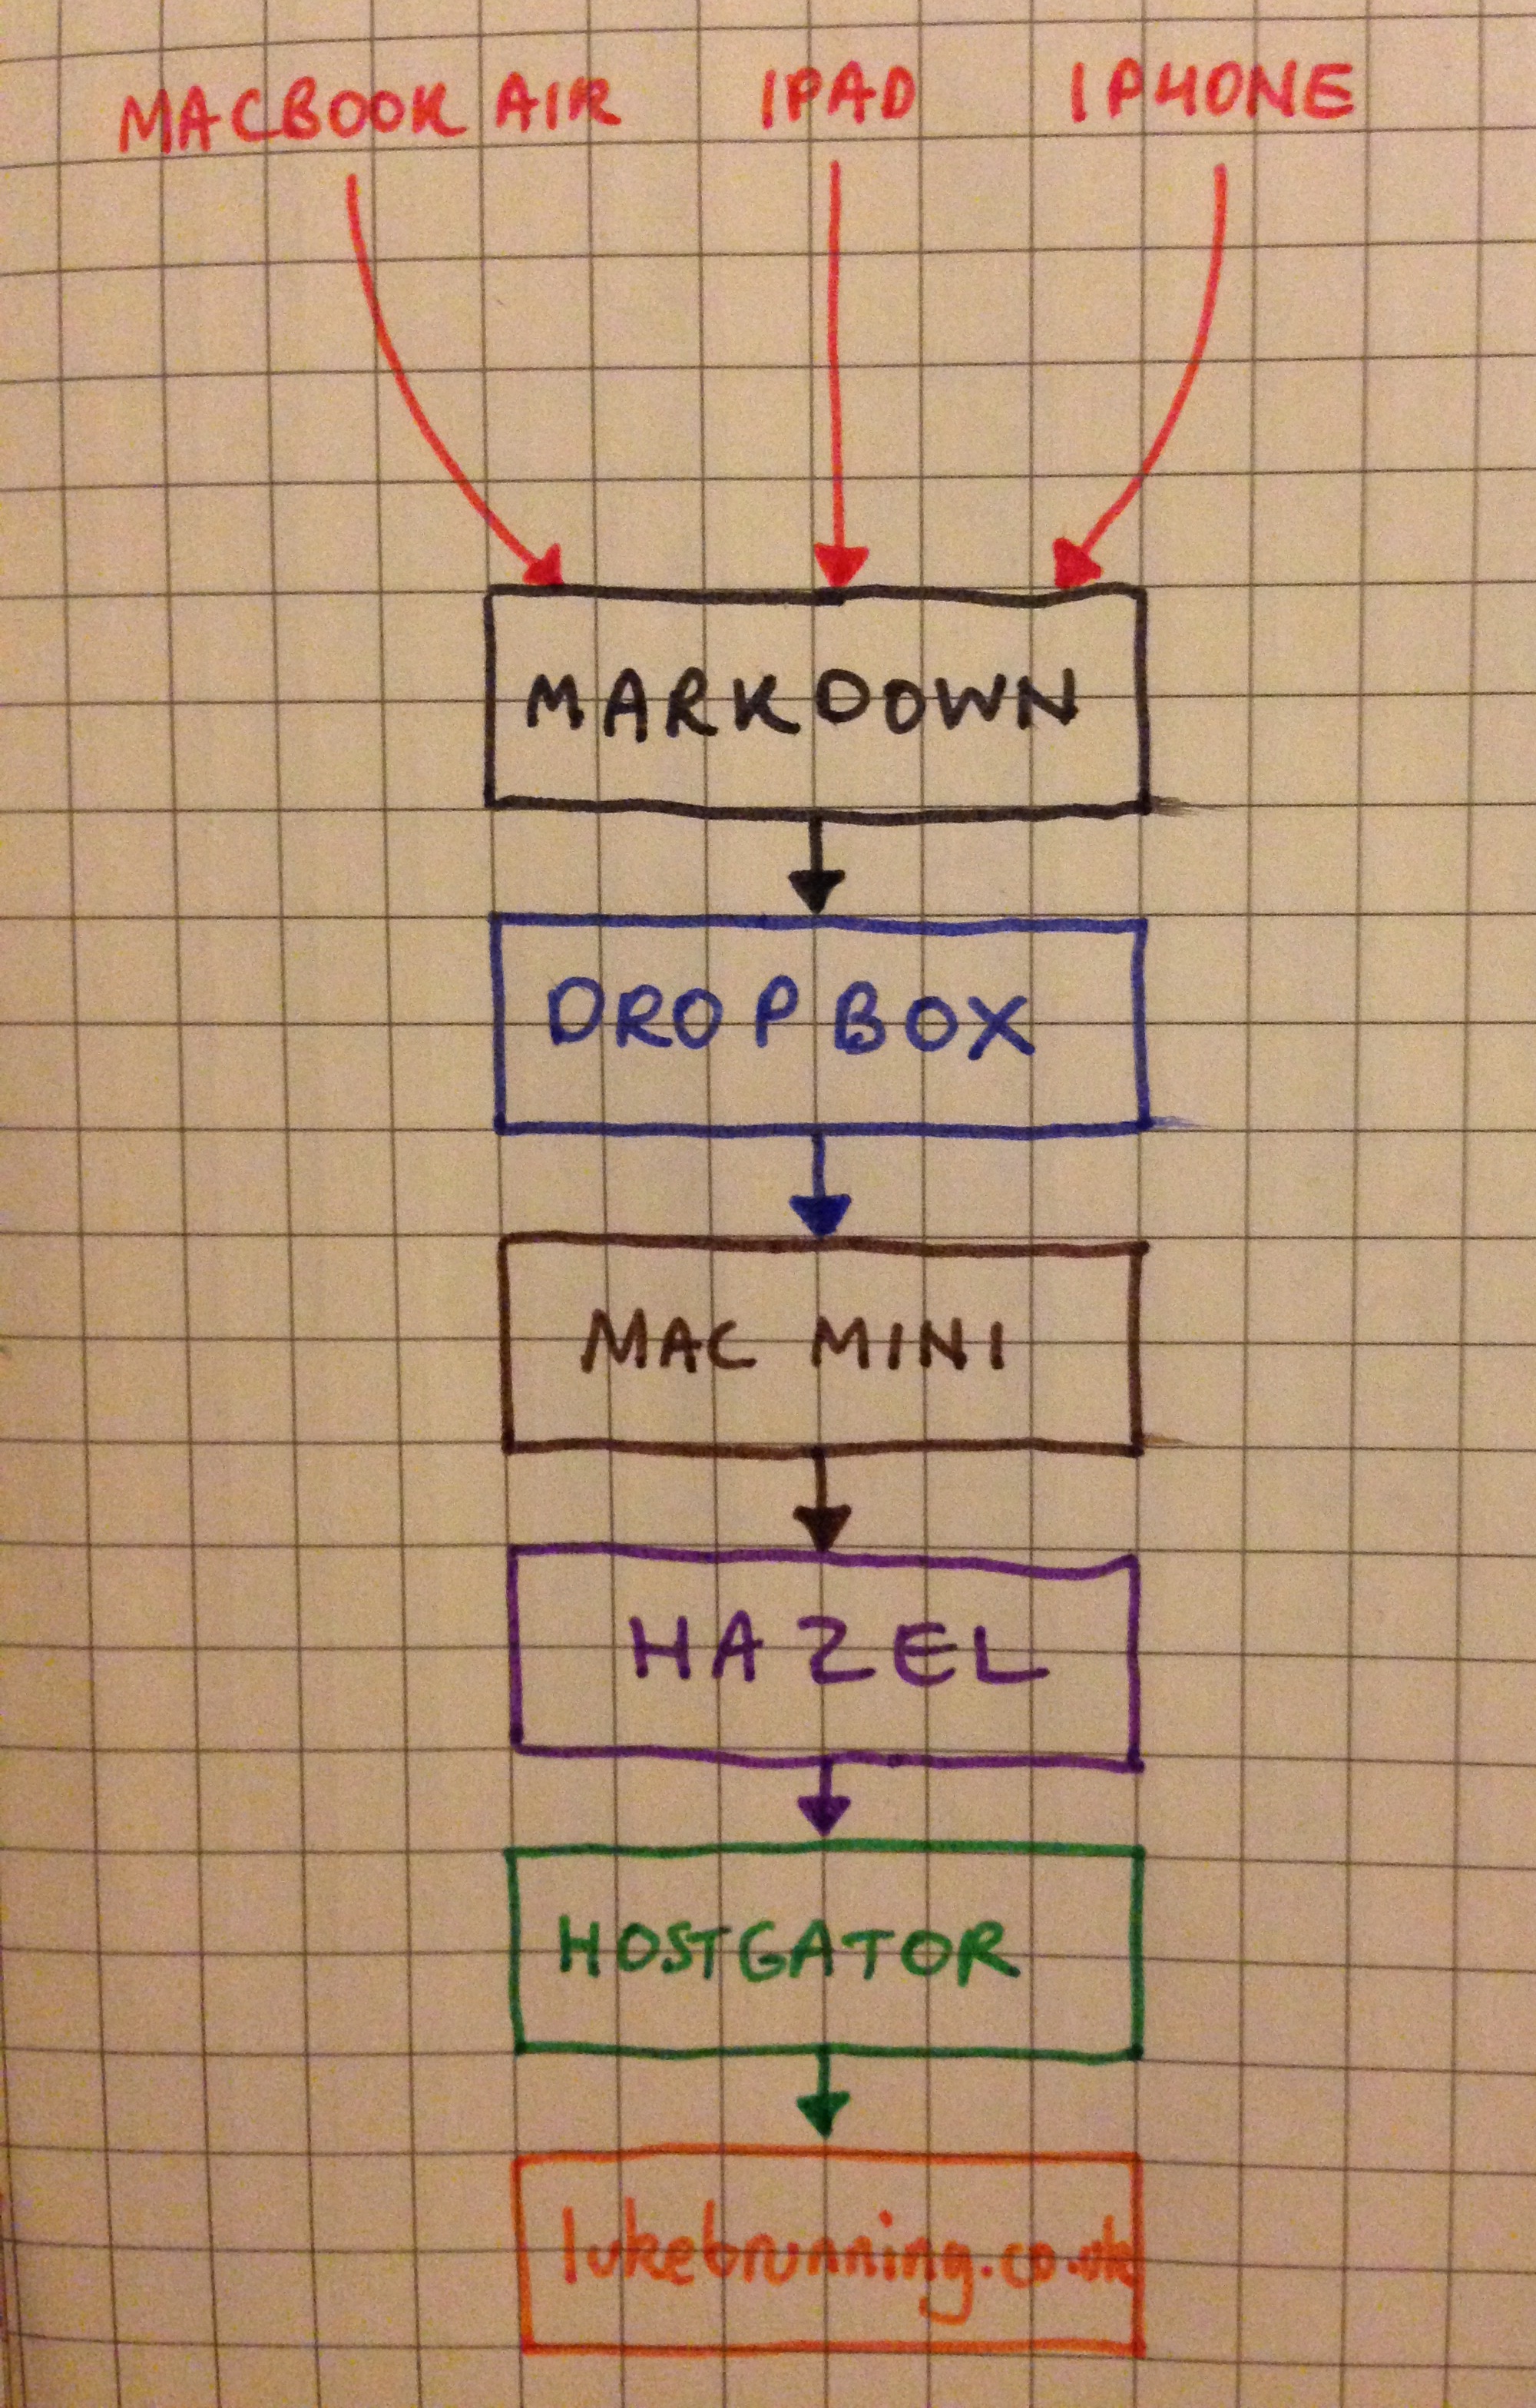 MACBOOK AIR IPAD IPHONE
MARKDOWN
DROPBOX
MAC MINI
HAZEL
HOSTGATOR
lukebrunning.co.uk